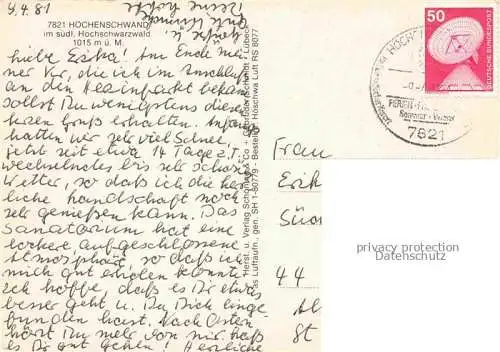 9.4.81
7821 HOCHENSCHWAND/
im südl. Hochschwarzwald
1015 m ü. M.
liebe Erika! Am Ende mei-
ner Kur, die ich im Anschluß
an den Herzinfarkt bekam
sollst Du wenigstens diesen
kurzen Gruß erhalten. Anfangs
hatten wir sehr viel Schnee,
jetzt seit etwa 14 Tage z.T.
wechselndes bis sehr schönes
Wetter, so daß ich die herr-
liche Landschaft noch
sehr genießen kann. Das
Sanatorium hat eine
lockere, aufgeschlossene
Atmosphäre so daß ich
mich gut erholen konnte.
Ich hoffe, daß es Dir etwas
besser geht u. Du Dich einge-
funden hast. Nach Ostern
hörst Du mehr von mir. Laß
es Dir gut gehen! Herzliche
Grüße u.
Herst. u. Verlag Schöning & Co + Gebrüder Schmidt · Lübeck
Das Luftaufn., gen. SH 1-80779 - Bestell-Nr. Höschwa Luft RS 8077
50
DEUTSCHE BUNDESPOST
7821
Frau
Erik
44
privacy protection
Ak
St